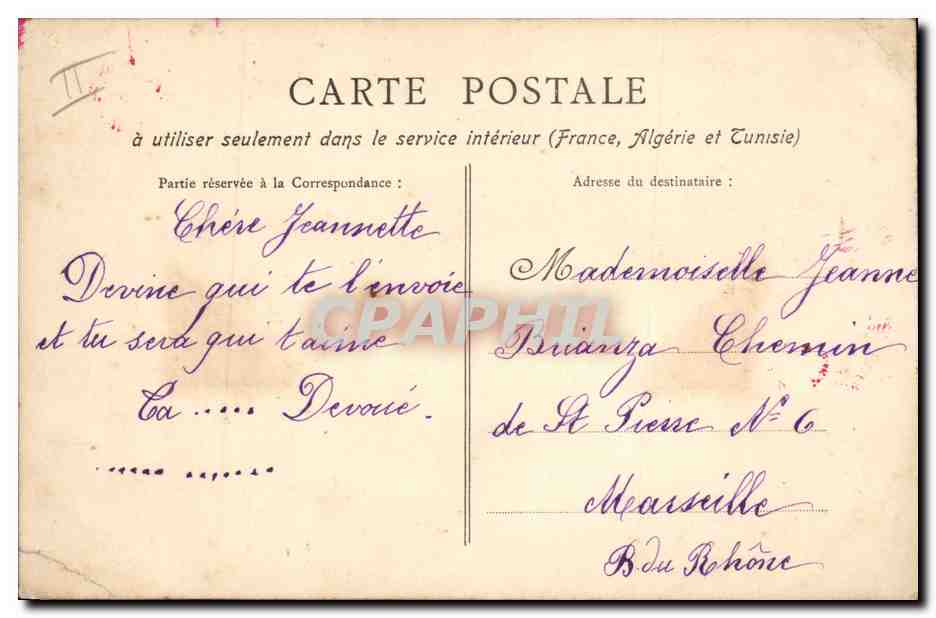 II
CARTE POSTALE
à utiliser seulement dans le service intérieur (France, Algérie et Tunisie)
Partie réservée à la Correspondance :
Chére Jeannette
Devine qui te l'envoie
et tu sera qui t'aime
Ta ..... Devoué.
...... .......
Adresse du destinataire :
Mademoiselle Jeanne
Brianza Chemin
de St Pierre No 6
Marseille
B du Rhône
CPAPHIL